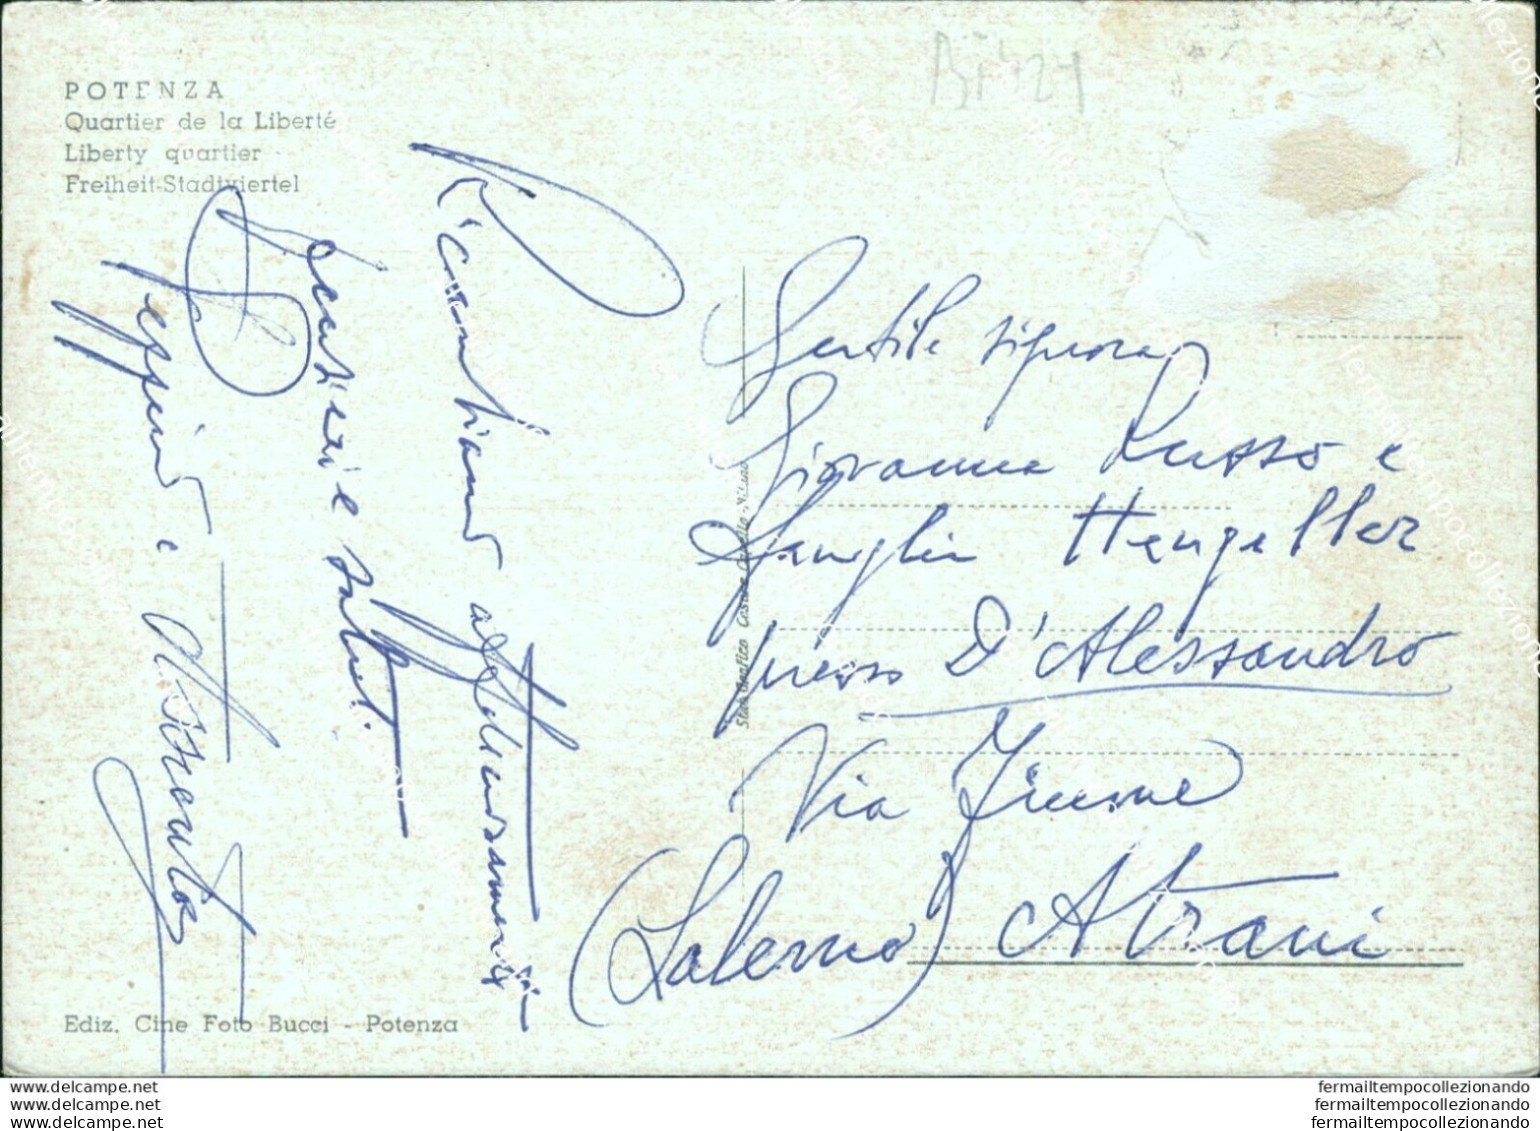 POTENZA
Quartier de la Liberté
Liberty quartier
Freiheit-Stadtviertel
Bi421
Ricambiamo affettuosamente
saluti
Peppino e Assunta
Gentile signora
Giovanna Russo e
famiglia Hengeller
presso D'Alessandro
Via Fiume
(Salerno) Atrani
Ediz. Cine Foto Bucci - Potenza
www.delcampe.net
www.delcampe.net
www.delcampe.net
fermailtempocollezionando
fermailtempocollezionando
fermailtempocollezionando